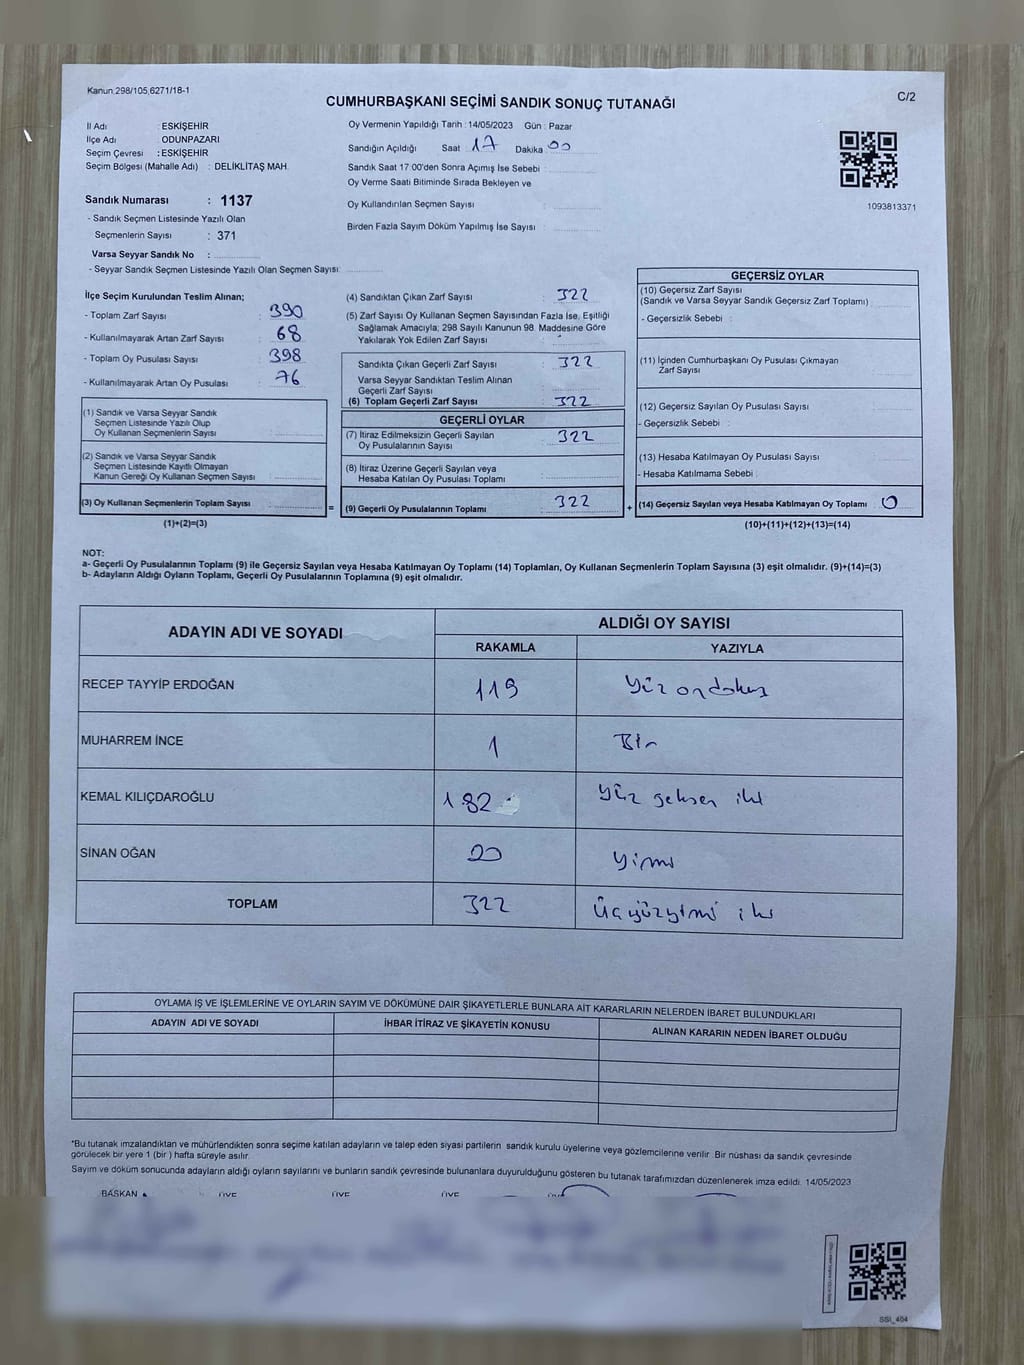 Kanun 298/105,6271/18-1
C/2
CUMHURBAŞKANI SEÇİMİ SANDIK SONUÇ TUTANAĞI
İl Adı : ESKİŞEHİR
İlçe Adı : ODUNPAZARI
Seçim Çevresi : ESKİŞEHİR
Seçim Bölgesi (Mahalle Adı) : DELİKLİTAŞ MAH.
Oy Vermenin Yapıldığı Tarih : 14/05/2023 Gün : Pazar
Sandığın Açıldığı Saat 17 Dakika 00
Sandık Saat 17:00'den Sonra Açımış İse Sebebi :
Oy Verme Saati Bitiminde Sırada Bekleyen ve
Oy Kullandırılan Seçmen Sayısı :
Birden Fazla Sayım Döküm Yapılmış İse Sayısı :
1093813371
Sandık Numarası : 1137
- Sandık Seçmen Listesinde Yazılı Olan
Seçmenlerin Sayısı : 371
Varsa Seyyar Sandık No :
- Seyyar Sandık Seçmen Listesinde Yazılı Olan Seçmen Sayısı:
İlçe Seçim Kurulundan Teslim Alınan;
- Toplam Zarf Sayısı : 390
- Kullanılmayarak Artan Zarf Sayısı : 68
- Toplam Oy Pusulası Sayısı : 398
- Kullanılmayarak Artan Oy Pusulası : 76
(1) Sandık ve Varsa Seyyar Sandık
Seçmen Listesinde Yazılı Olup
Oy Kullanan Seçmenlerin Sayısı :
(2) Sandık ve Varsa Seyyar Sandık
Seçmen Listesinde Kayıtlı Olmayan
Kanun Gereği Oy Kullanan Seçmen Sayısı :
(3) Oy Kullanan Seçmenlerin Toplam Sayısı :
(1)+(2)=(3)
=
(4) Sandıktan Çıkan Zarf Sayısı : 322
(5) Zarf Sayısı Oy Kullanan Seçmen Sayısından Fazla İse, Eşitliği
Sağlamak Amacıyla; 298 Sayılı Kanunun 98. Maddesine Göre
Yakılarak Yok Edilen Zarf Sayısı :
Sandıkta Çıkan Geçerli Zarf Sayısı : 322
Varsa Seyyar Sandıktan Teslim Alınan
Geçerli Zarf Sayısı :
(6) Toplam Geçerli Zarf Sayısı : 322
GEÇERLİ OYLAR
(7) İtiraz Edilmeksizin Geçerli Sayılan
Oy Pusulalarının Sayısı : 322
(8) İtiraz Üzerine Geçerli Sayılan veya
Hesaba Katılan Oy Pusulası Toplamı :
(9) Geçerli Oy Pusulalarının Toplamı : 322
+
GEÇERSİZ OYLAR
(10) Geçersiz Zarf Sayısı
(Sandık ve Varsa Seyyar Sandık Geçersiz Zarf Toplamı) :
- Geçersizlik Sebebi :
(11) İçinden Cumhurbaşkanı Oy Pusulası Çıkmayan
Zarf Sayısı :
(12) Geçersiz Sayılan Oy Pusulası Sayısı :
- Geçersizlik Sebebi :
(13) Hesaba Katılmayan Oy Pusulası Sayısı :
- Hesaba Katılmama Sebebi :
(14) Geçersiz Sayılan veya Hesaba Katılmayan Oy Toplamı : 0
(10)+(11)+(12)+(13)=(14)
NOT:
a- Geçerli Oy Pusulalarının Toplamı (9) ile Geçersiz Sayılan veya Hesaba Katılmayan Oy Toplamı (14) Toplamları, Oy Kullanan Seçmenlerin Toplam Sayısına (3) eşit olmalıdır. (9)+(14)=(3)
b- Adayların Aldığı Oyların Toplamı, Geçerli Oy Pusulalarının Toplamına (9) eşit olmalıdır.
ADAYIN ADI VE SOYADI
ALDIĞI OY SAYISI
RAKAMLA YAZIYLA
RECEP TAYYİP ERDOĞAN 119 Yüz ondokuz
MUHARREM İNCE 1 Bir
KEMAL KILIÇDAROĞLU 182 Yüz seksen iki
SİNAN OĞAN 20 Yirmi
TOPLAM 322 Üçyüzyirmi iki
OYLAMA İŞ VE İŞLEMLERİNE VE OYLARIN SAYIM VE DÖKÜMÜNE DAİR ŞİKAYETLERLE BUNLARA AİT KARARLARIN NELERDEN İBARET BULUNDUKLARI
ADAYIN ADI VE SOYADI İHBAR İTİRAZ VE ŞİKAYETİN KONUSU ALINAN KARARIN NEDEN İBARET OLDUĞU
*Bu tutanak imzalandıktan ve mühürlendikten sonra seçime katılan adayların ve talep eden siyasi partilerin sandık kurulu üyelerine veya gözlemcilerine verilir. Bir nüshası da sandık çevresinde
görülecek bir yere 1 (bir ) hafta süreyle asılır.
Sayım ve döküm sonucunda adayların aldığı oyların sayılarını ve bunların sandık çevresinde bulunanlara duyurulduğunu gösteren bu tutanak tarafımızdan düzenlenerek imza edildi. 14/05/2023
BAŞKAN ÜYE ÜYE ÜYE
SSI_404